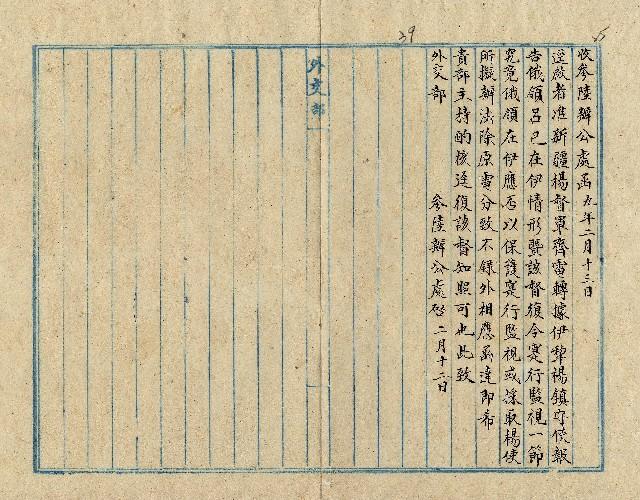 收參陸辦公處函九年二月十三日
逕啟者准新疆楊督軍齊電轉據伊犂楊鎮守使報
告俄領呂巴在伊情形暨該督復令實行監視一節
究竟俄領在伊應否以保護實行監視或採取楊使
所擬辦法除原電分致不錄外相應函達即希
貴部主持酌核逕復該督知照可也此致
外交部
參陸辦公處啓 二月十二日
外交部
39